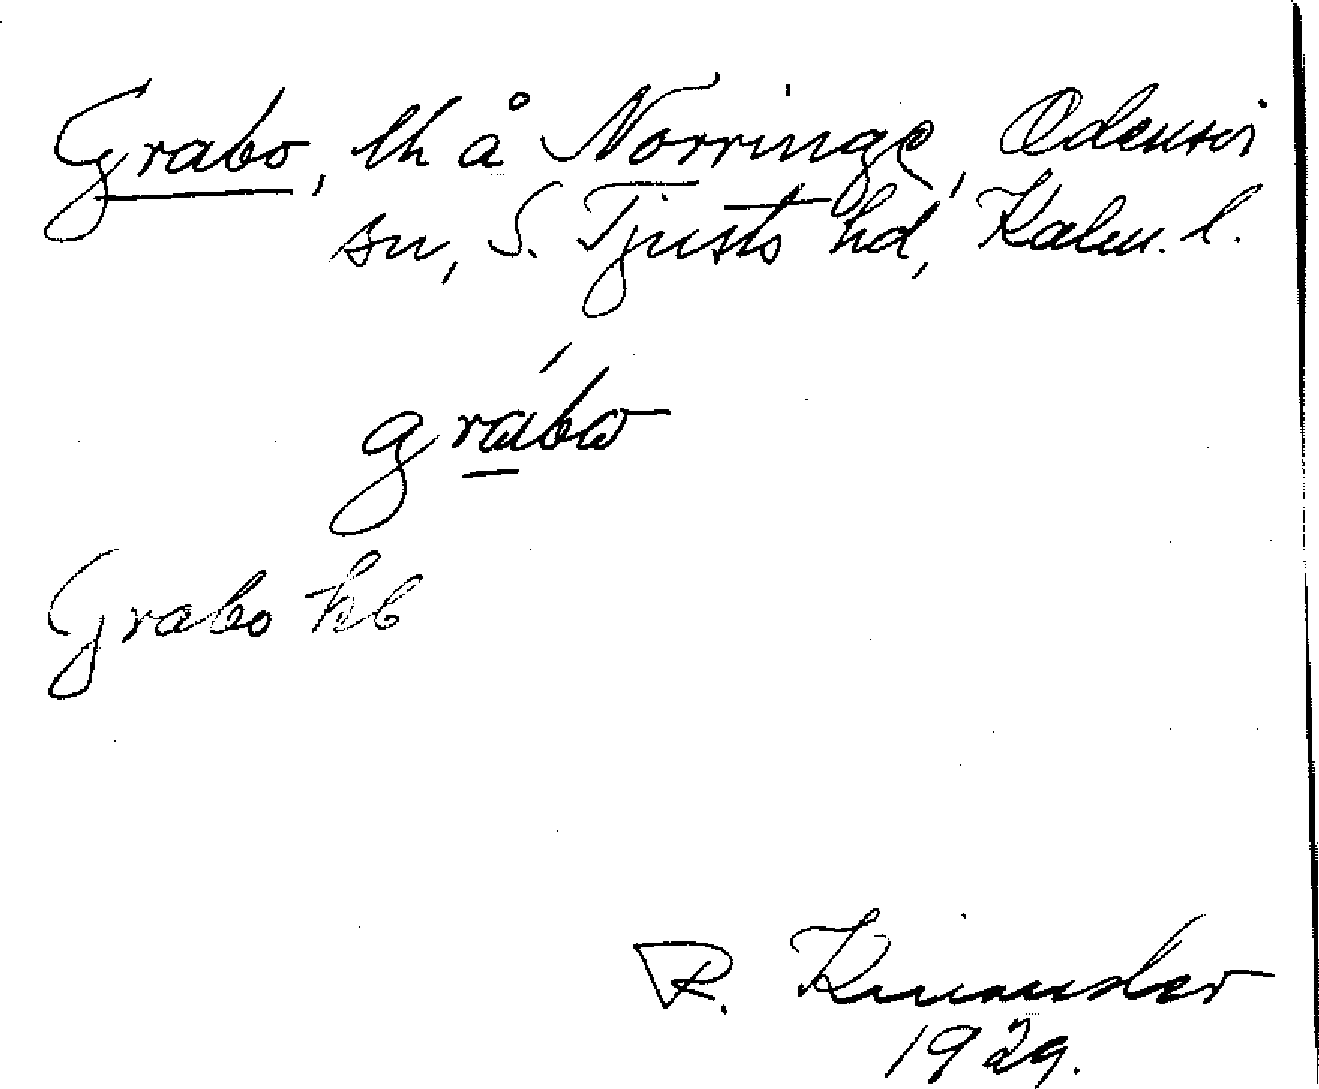 Grabo, lh å Norringe, Odensvi
sn, S. Tjusts hd, Kalm. l.
grábω
Grabo hb
R. Kinander
1929.